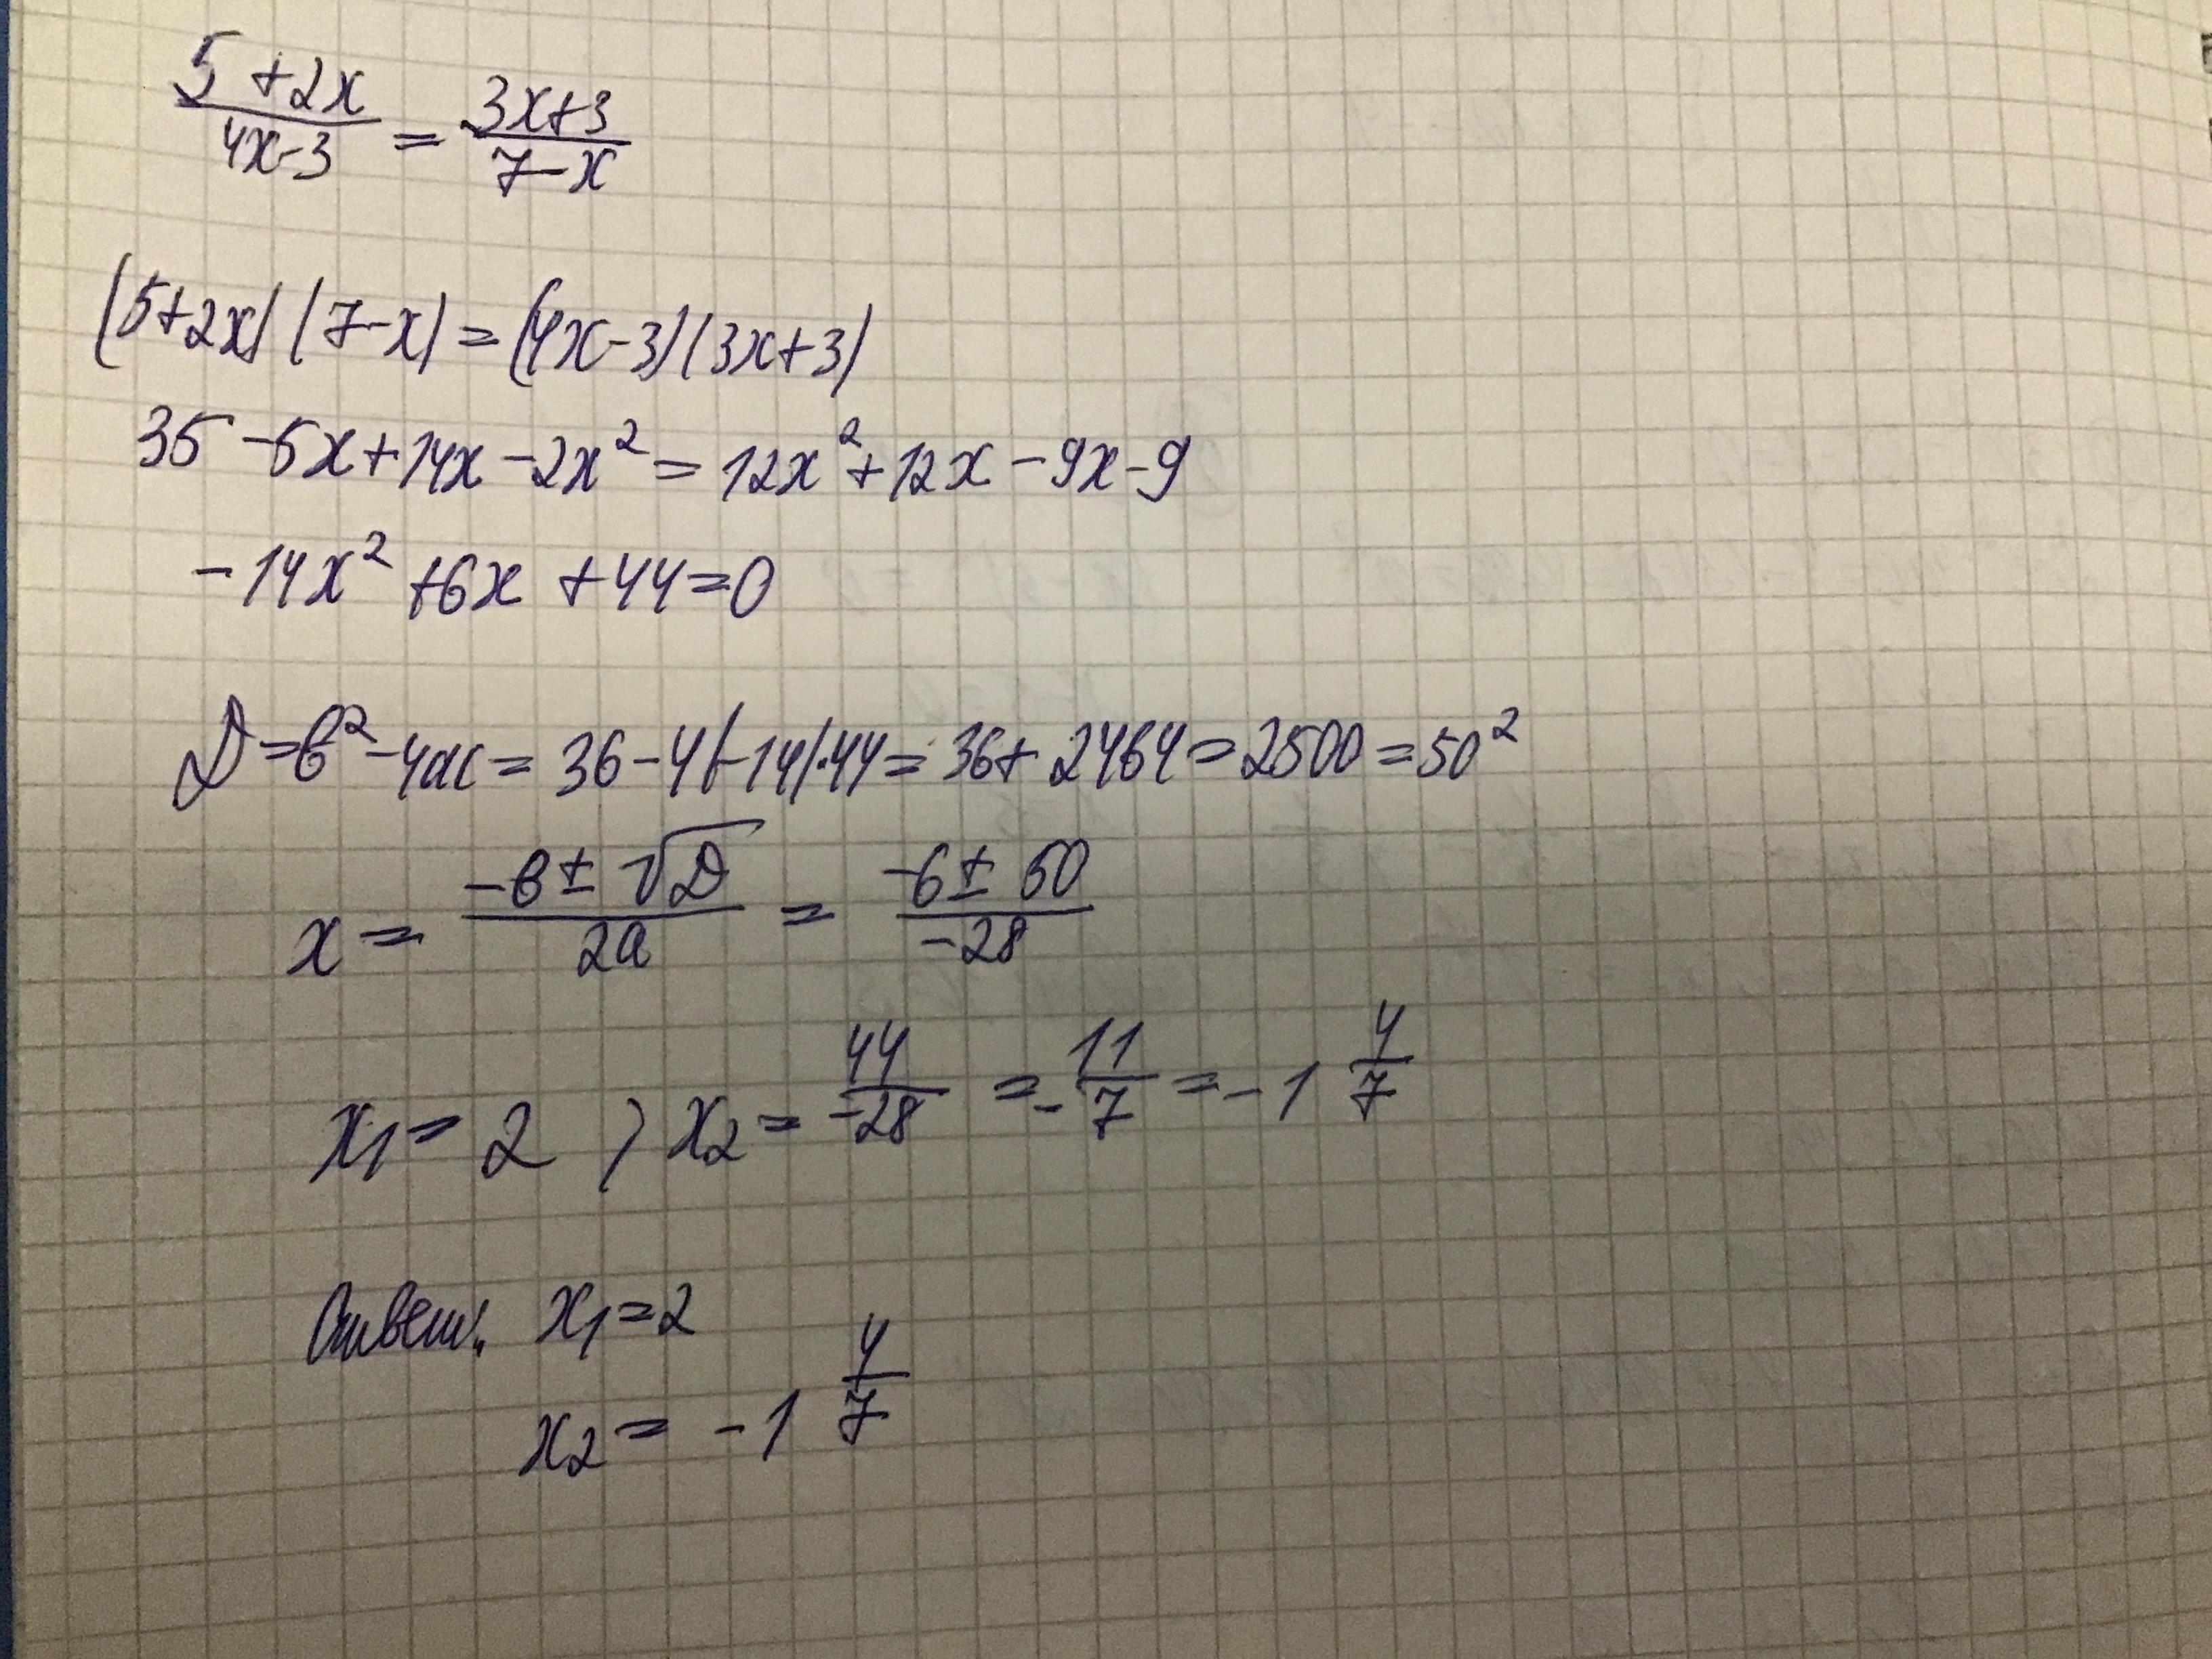 5+2x/4x-3 = 3x+3/7-x
(5+2x)(7-x)=(4x-3)(3x+3)
35-5x+14x-2x²=12x²+12x-9x-9
-14x²+6x+44=0
D=b²-4ac=36-4(-14)·44=36+2464=2500=50²
x=-b±√D/2a=-6±50/-28
x₁=2; x₂=44/-28=-11/7=-1 4/7
Ответ: x₁=2
x₂=-1 4/7